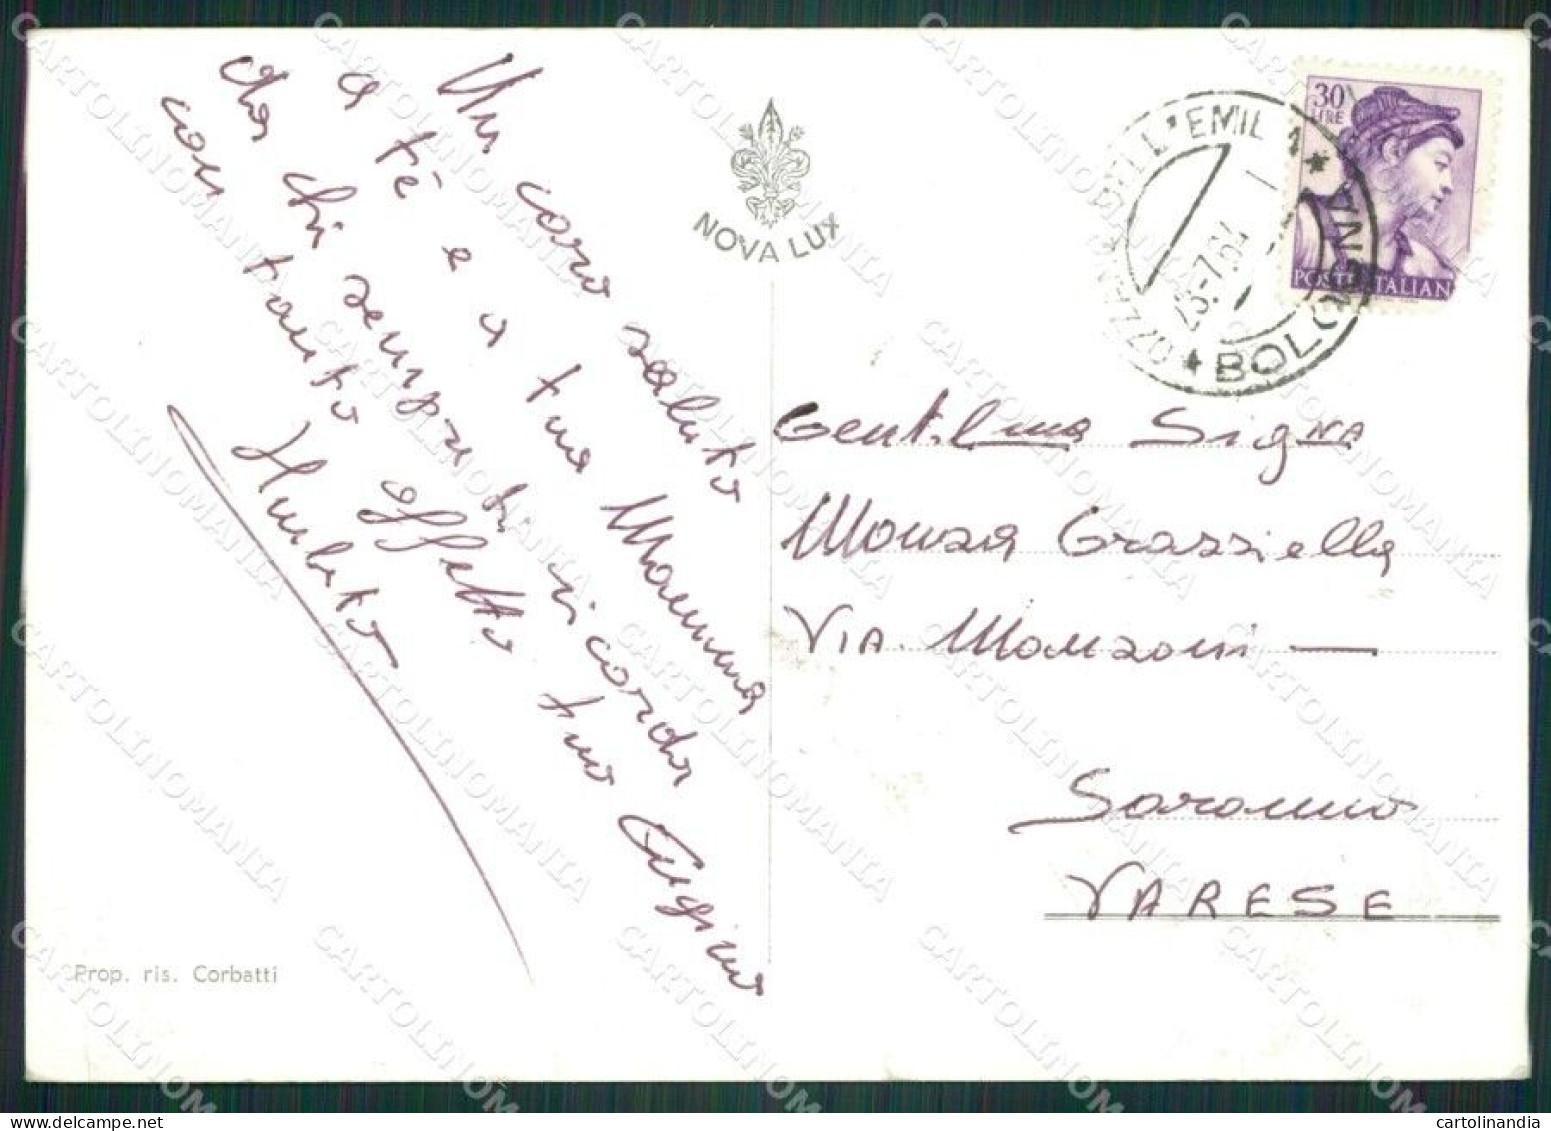 Un caro saluto
a tè e a tua Mamma
da chi sempre ti ricorda
con tanto affetto tuo Cugino
Humberto
NOVA LUX
30
LIRE
POSTE ITALIANE
OZZANO DELL'EMILIA
BOLOGNA
23-7.64
Gentil.ma Sig.NA
Monza Grazziella
VIA. Manzoni —
Saronno
VARESE
Prop. ris. Corbatti
CARTOLINOMANIA
cartolinandia